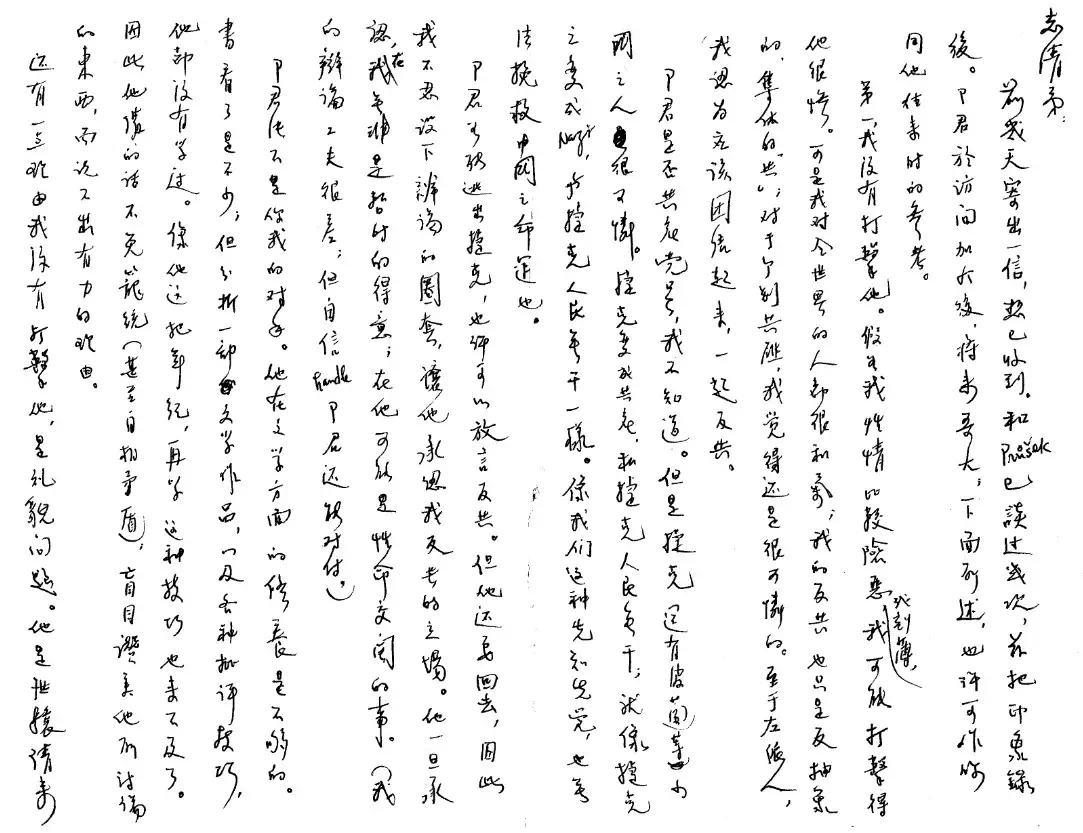 志清弟：
前幾天寄出一信，想已收到。和Průšek已談过幾次，茲把印象錄
後。P君於訪问加大後，将来哥大；下面所述，也许可作你
同他结来时的参考。
第一，我没有打擊他。假如我性情比較險惡或刻薄，我可能打擊得
他很惨。可是我对全世界的人都很和氣，我的反共也只是反抽象
的，集体的“共”；对于个别共雄，我觉得还是很可憐的。至于左倾人，
我认为应该团结起来，一起反共。
P君是否共产党员，我不知道。但是捷克还有波蘭等小
国之人很可憐。捷克变成共产，和捷克人民無干，就像捷克
之变成Nazi，与捷克人民無干一樣。像我们这种先知先觉，也無
法挽救中国之命运也。
P君如能逃出捷克，也许可以放言反共。但他还要回去，因此
我不忍设下辩论的圈套，讓他承認我反共的立場。他一旦承
認，在我無非是暂时的得意；在他可能是性命交関的事。（我
的辩論工夫很差，但自信handle P君还能对付。）
P君决不是你我的对手。他在文学方面的修養是不够的。
書看了是不少，但分析一部文学作品，以及各种批评技巧，
他都没有学过。像他这把年紀，再学这种技巧也来不及了。
因此他讲的话不免籠统（甚至自相矛盾），盲目讚美他所討論
的東西，而说不出有力的理由。
还有一点理由我没有打擊他，是礼貌问题。他是世驤请来